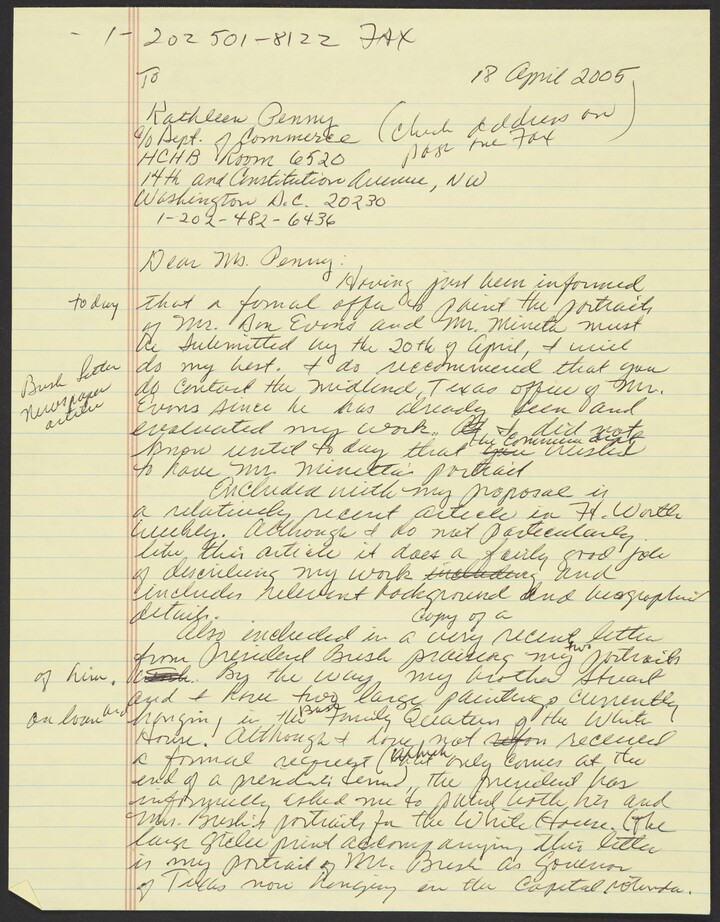 - 1 - 202 501-8122 FAX
To 18 April 2005
Kathleen Penny (Check address on
c/o Dept. of Commerce past one Fax)
HCHB Room 6520
14th and Constitution Avenue, NW
Washington D.C. 20230
1-202-482-6436
Dear Ms. Penny:
Having just been informed
today that a formal offer to paint the portraits
of Mr. Don Evans and Mr. Mineta must
be submitted by the 20th of April, I will
do my best. I do recommend that you
Bush letter
newspaper
article
do contact the Midland, Texas office of Mr.
Evans since he has already seen and
evaluated my work. I did not
know until today that the Commerce Dept. wished
to have Mr. Minetta's portrait
Included with my proposal is
a relatively recent article in Ft. Worth
Weekly. Although I do not particularly
like this article it does a fairly good job
of describing my work including and
includes relevant background and biographical
details.
Also included is a copy of a very recent letter
from President Bush praising my two portraits
of him. By the way, my brother Stuart
and I have two large paintings currently
on loan and hanging in the Bush Family Quarters of the White
House. Although I have not received
a formal request (which only comes at the
end of a president's term), the president has
informally asked me to paint both his and
Mrs. Bush's portraits for the White House. (The
large giclee print accompanying this letter
is my portrait of Mr. Bush as Governor
of Texas now hanging in the Capital rotunda.